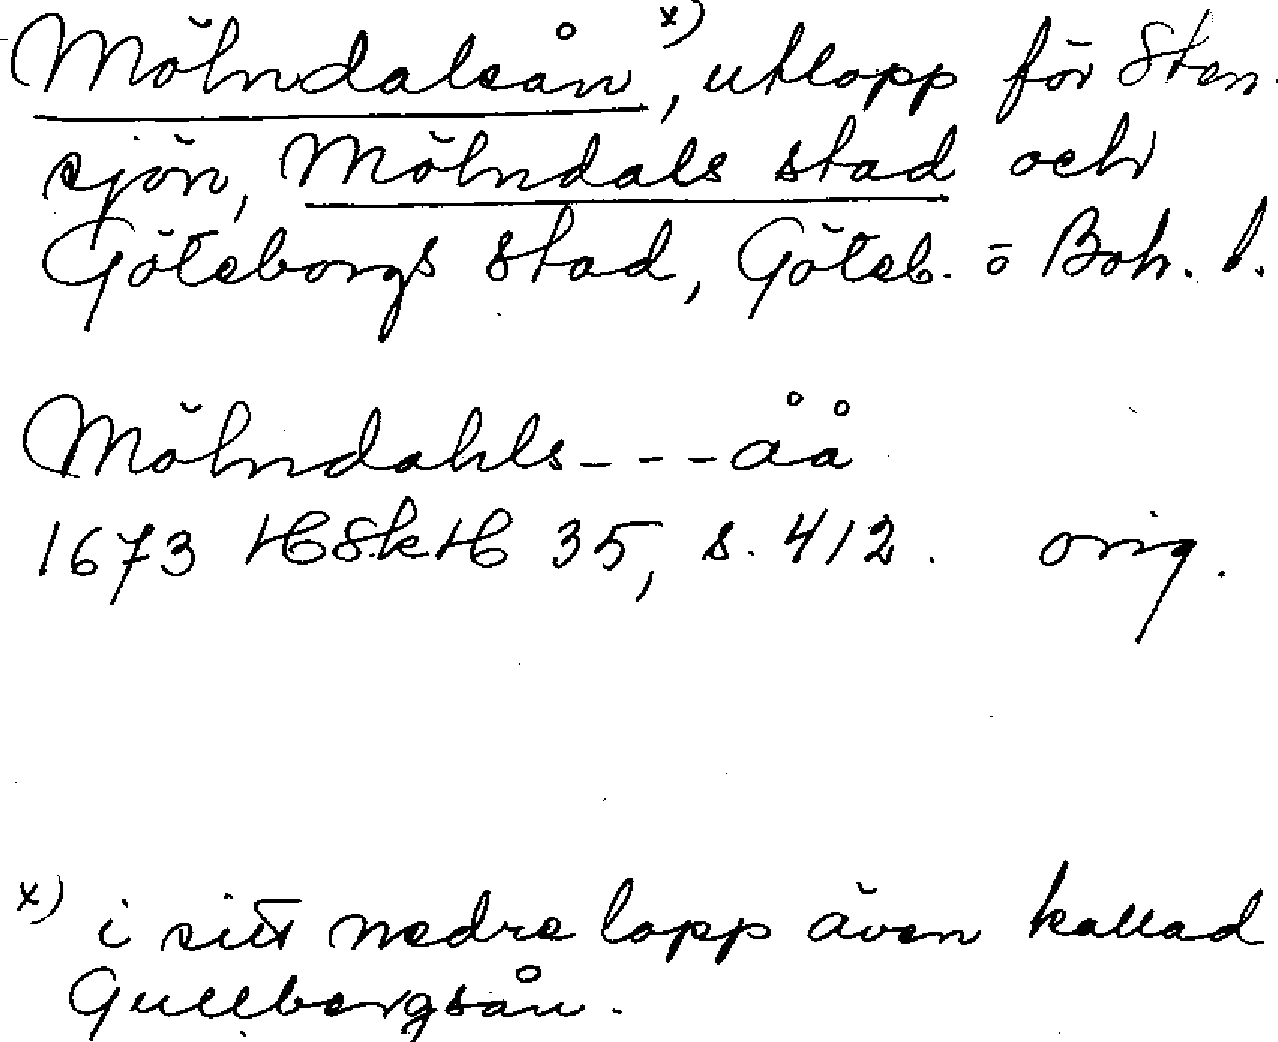 Mölndalsån x), utlopp för Sten-
sjön, Mölndals stad och
Göteborgs stad, Göteb. o Boh. l.
Mölndahls - - - åå
1673 HSkH 35, s. 412. orig.
x) i sitt nedre lopp även kallad
Gullbergsån.